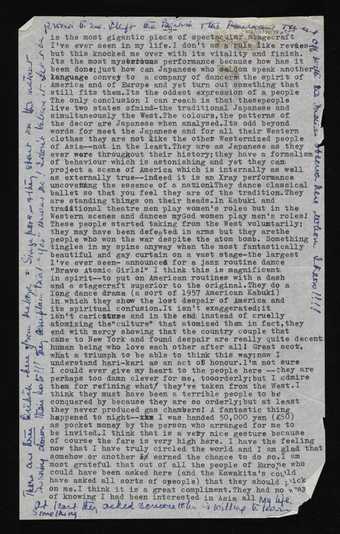 is the most gigantic piece of spectacular stagecraft
I've ever seen in my life.I don't as a rule like revues
but this knocked me over with its vitality and finish.
Its the most mysterious performance because how has it
been done;just how can Japanese who seldom speak another
language convey to a company of dancers the spirit of
America and of Europe and yet turn out something that
still fits them.Its the oddest expression of a people
The only conclusion I can reach is that these people
live two states of mind-the traditional Japanese and
simultaneously the West.The colours,the patterns of
the decor are Japanese when analysed.Its odd beyond
words for meet the Japanese and for all their Western
clothes they are not like the other Westernized people
of Asia--not in the least.They are as Japanese as they
ever were throughout their history;they have a formalism
of behaviour which is astonishing and yet they can
project a scene of America which is internally as well
as externally true--indeed it is an Xray performance
uncovering the essence of a nation!They dance classical
ballet so that you feel they are of the tradition.They
are standing things on their heads.In Kabuki and
traditional theatre men play women's roles but in the
Western scenes and dances myGod women play men's roles!
These people started taking from the West voluntarily;
They may have been defeated in arms but they are the
people who won the war despite the atom bomb. Something
tingles in my spine anyway when the most fantastically
beautiful and gay curtain on a vast stage-the largest
I've ever seen- announced for a jazz routine dance
"Bravo Atomic Girls!" I think this is magnificent
in spirit--to put on American routines with a dash
and a stagecraft superior to the original.They do a
long dance drama (a sort of 1957 American Kabuki)
in which they show the lost despair of America and
its spiritual confusion.It isn't exaggerated;it
isn't caricature and in the end instead of cruelly
atomizing the"culture" that atomised them in fact,they
end with mercy showing that the country couple that
came to New York and found despair are really quite decent
human beings who love each other after all! Great Scot,
what a triumph to be able to think this way;now I
understand hari-kari as an act of honour.I'm not sure
I could ever give my heart to the people here --they are
perhaps too damn clever for me, too orderly;but I admire
them for refining what they've taken from the West.I
think they must have been a terrible people to be
conquered by because they are so orderly;but at least
they never produced gas chambers! A fantastic thing
happened to night-- I was handed 50,000 yen (£50)
as pocket money by the person who arranged for me to
be invited.I think that is a very nice gesture because
of course the fare is very high here. I have the feeling
now that I have truly circled the world and I am glad that
somehow or another I earned the chance to do so.I am
most grateful that out of all the people of Europe who
could have been asked here (and the Kawakita's could
have asked all sorts of people) that they should pick
on me.I think it is a great compliment.They had no way
of knowing I had been interested in Asia all my life
At least they asked someone who is willing to learn
something.